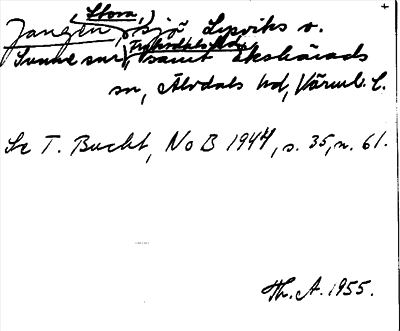 (Stora,)
Jangen, sjö Lysviks o.
Sunne snr, Fryksdals hd, samt Ekshärads
sn, Älvdals hd, Värml. l.
Se T. Bucht, NoB 1944, s. 35, n. 61.
Th. A. 1955.